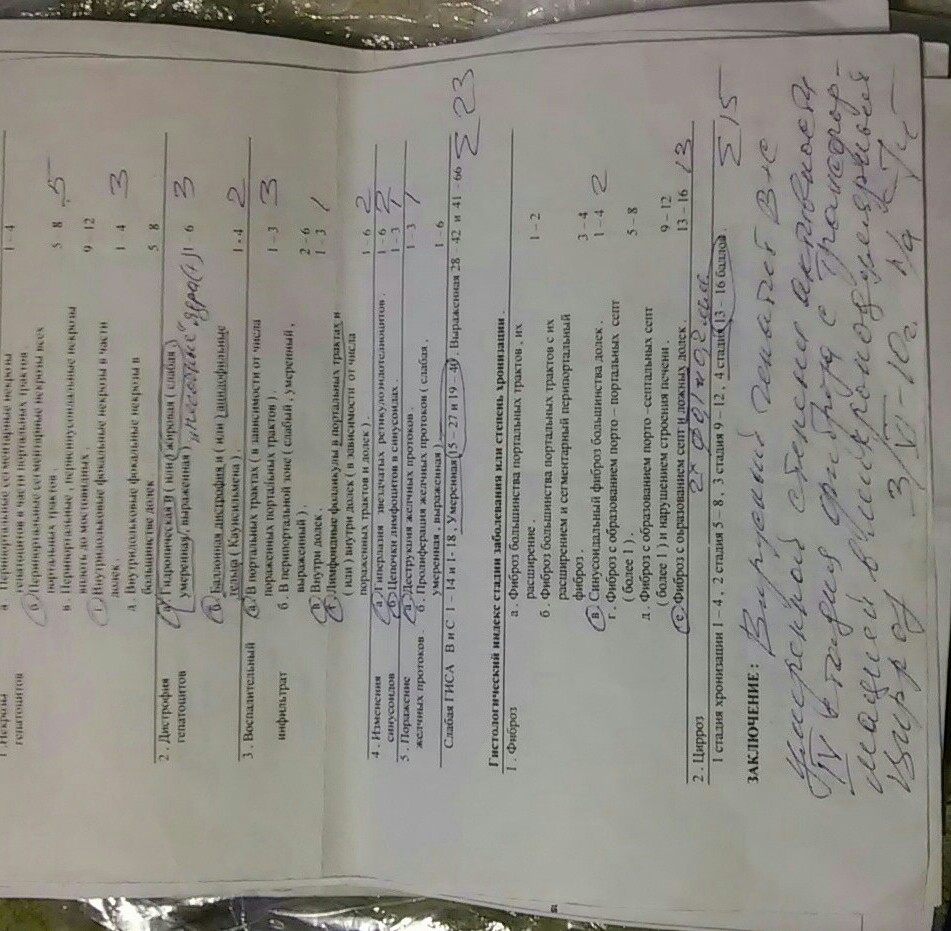 1. Некрозы гепатоцитов
а. Перипортальные сегментарные некрозы
гепатоцитов в части портальных трактов. 1 – 4
б. Перипортальные сегментарные некрозы всех
портальных трактов. 5 – 8 5
в. Перипортальные, перисинусоидальные некрозы
вплоть до мостовидных. 9 – 12
г. Внутридольковые фокальные некрозы в части
долек. 1 – 4 3
д. Внутридольковые фокальные некрозы в
большинстве долек 5 – 8
2. Дистрофия гепатоцитов
а. Гидропическая и (или) жировая (слабая,
умеренная, выраженная) 1 – 6 3
ядра (+)
б. Баллонная дистрофия и (или) ацидофильные
тельца (Каунсильмена). 1 - 4 2
3. Воспалительный инфильтрат
а. В портальных трактах (в зависимости от числа
пораженных портальных трактов). 1 – 3 3
б. В перипортальной зоне (слабый, умеренный,
выраженный). 2 – 6
в. Внутри долек. 1 – 3 1
г. Лимфоидные фолликулы в портальных трактах и
(или) внутри долек (в зависимости от числа
пораженных трактов и долек). 1 – 6 2
4. Изменения синусоидов
а. Гиперплазия звездчатых ретикулоэндотелиоцитов. 1 – 6 2
б. Цепочки лимфоцитов в синусоидах. 1 – 3 1
5. Поражение желчных протоков.
а. Деструкция желчных протоков. 1 – 3 1
б. Пролиферация желчных протоков (слабая,
умеренная, выраженная) 1 – 6
Слабая ГИСА В и С 1 – 14 и 1- 18, Умеренная 15 – 27 и 19 – 40. Выраженная 28 - 42 и 41 - 66 Σ 23
Гистологический индекс стадии заболевания или степень хронизации.
1. Фиброз
а. Фиброз большинства портальных трактов, их
расширение. 1 – 2
б. Фиброз большинства портальных трактов с их
расширением и сегментарный перипортальный
фиброз. 3 – 4
в. Синусоидальный фиброз большинства долек. 1 – 4 2
г. Фиброз с образованием порто – портальных септ
(более 1). 5 – 8
д. Фиброз с образованием порто –септальных септ
(более 1) и нарушением строения печени. 9 – 12
е. Фиброз с образованием септ и ложных долек. 13 – 16 13
2. Цирроз
1 стадия хронизации 1 – 4, 2 стадия 5 – 8, 3 стадия 9 – 12, 4 стадия 13 – 16 баллов. Σ 15
ЗАКЛЮЧЕНИЕ: Вирусный гепатит В+С
умеренной степени активности
IV стадия фиброза с трансфор-
мацией в микронодулярный
цирроз